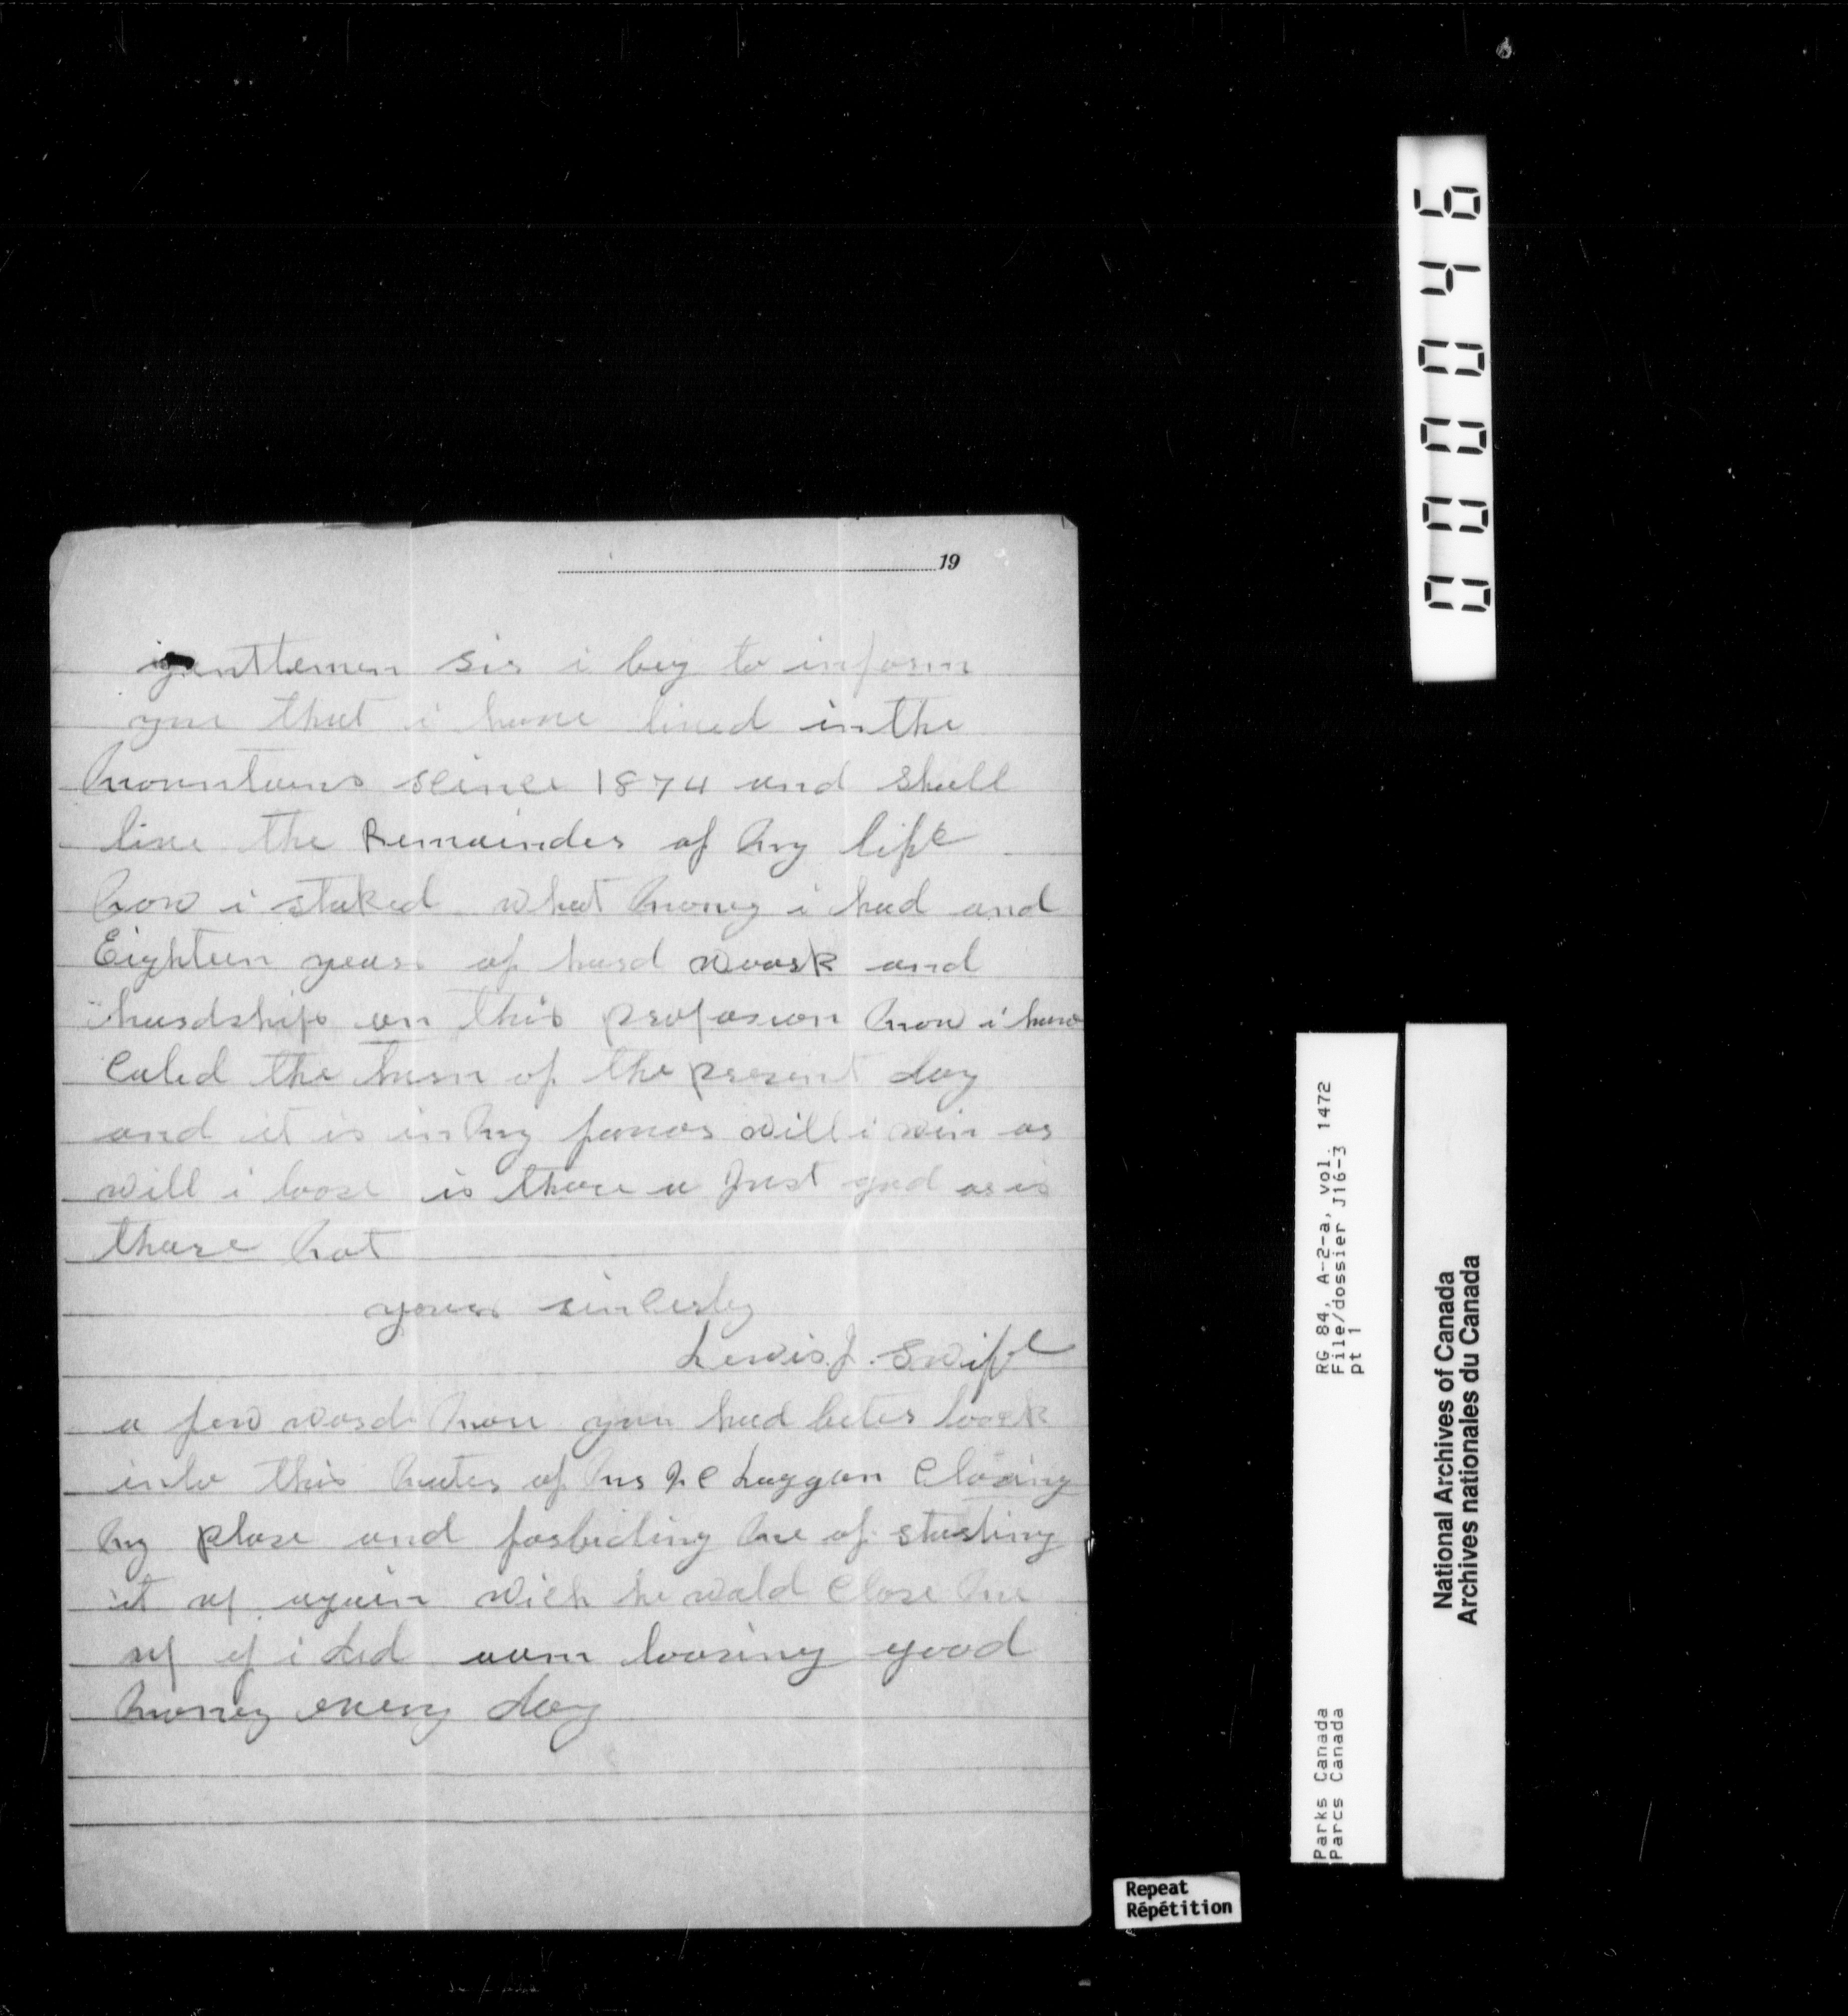 19
gentlemen sir i beg to inform
you that i have lived in the
mountains scince 1874 and shall
live the Remainder of my life
now i staked what money i had and
Eighteen years of hard woork and
hardships on this profasion now i have
Caled the turn of the present day
and it is in my favor will i win or
will i loose is thare a Just god or is
thare not
yours sincerly
Lewis. J. Swift
a few words more you had beter loock
into this mater of mr J. C Laggan Closing
my plase and forbiding me of starting
it up again wich he wold Close me
up if i did aam loosing good
money every day
000046
RG 84, A-2-a, vol. 1472
File/dossier J16-3
pt 1
Parks Canada
Parcs Canada
National Archives of Canada
Archives nationales du Canada
Repeat
Répétition